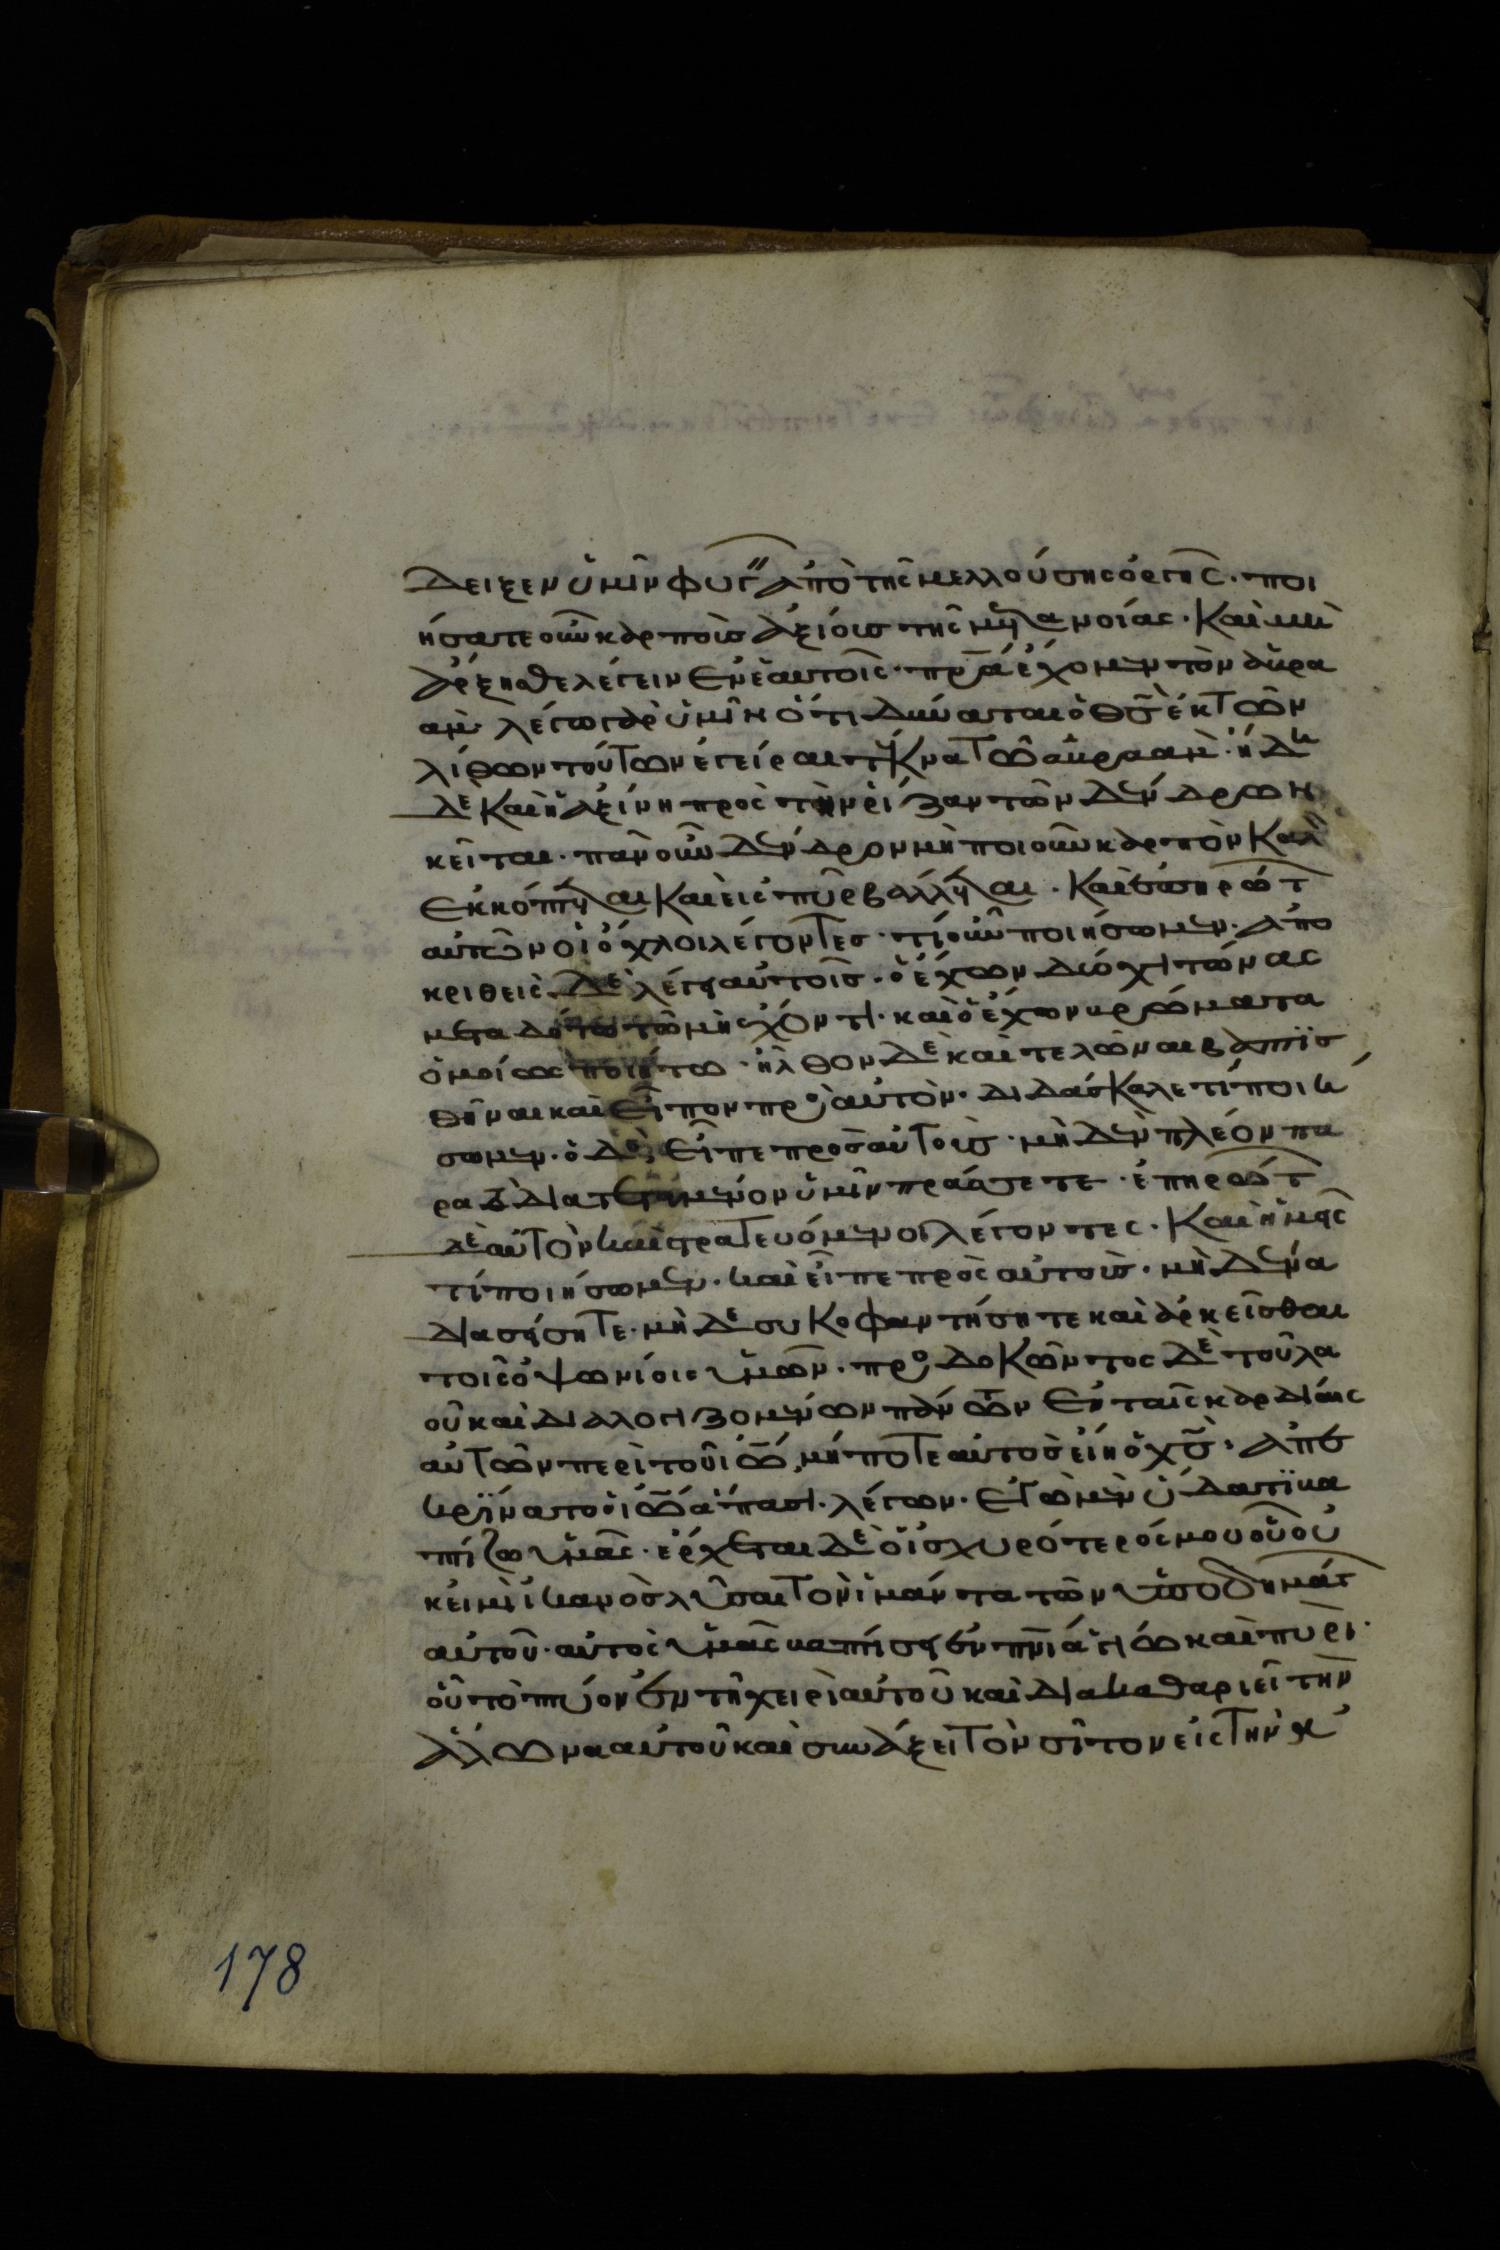 δειξεν ὑμῖν φυγ ἀπὸ τῆς μελλούσης ὀργῆς· ποι
ήσατε οὖν καρποὺς ἀξίους τῆς μεταμοίας· Και μὴ
ἄρξησθε λέγειν ἐν ἑαυτοῖς· πρα ἔχομεν τὸν ἀβρα
ὰμ λέγω γὰρ ὑμῖν ὅτι δύναται ὁ θς ἐκ τῶν
λίθων τούτων ἐγεῖραι τέκνα τῶ ἀβρααμ· ἤδη
δὲ Και ἡ ἀξίνη πρὸς τὴν ρίζαν τῶν δένδρων
κεῖται· πᾶν οὖν δένδρον μὴ ποιοῦν καρπὸν Καλὸ
ἐκκόπτεται Και εἰς πῦρ βάλλεται· Και ἐπηρώτ
αὐτὸν οἱ ὄχλοι λέγοντες· τί οὖν ποιήσωμεν· ἀπο
κριθεὶς δὲ λέγει αὐτοῖς· ὁ ἔχων δύο χιτῶνας
μεταδότω τῶ μὴ ἔχοντι· καὶ ὁ ἔχων βρώματα
ὁμοίως ποιείτω· ἦλθον δὲ καὶ τελῶναι βαπτισ
θῆναι καὶ εἶπον πρὸς αὐτόν· διδάσκαλε τί ποιή
σωμεν· ὁ δὲ εἶπε πρὸς αὐτούς· μηδὲν πλέον πα
ρὰ τὸ διατεταγμένον ὑμῖν πράσσετε· ἐπηρώτ
δὲ αὐτὸν καὶ στρατευόμενοι λέγοντες· Και ἡμεῖς
τί ποιήσωμεν· καὶ εἶπε πρὸς αὐτούς· μηδένα
διασείσητε· μηδὲ συκοφαντήσητε καὶ ἀρκεῖσθαι
τοῖς ὀψωνίοις ὑμῶν· προσδοκῶντος δὲ τοῦ λα
οῦ καὶ διαλογιζομένων πάντων ἐν ταῖς καρδίαις
αὐτῶν περὶ τοῦ ἰω, μήποτε αὐτὸς εἴη ὁ χς· ἀπε
κρίνατο ὁ ἰω ἅπασι· λέγων· ἐγὼ μὲν ὕδατι βα
πτίζω ὑμᾶς· ἔρχεται δὲ ὁ ἰσχυρότερός μου οὗ οὐ
κ εἰμὶ ἱκανὸς λῦσαι τὸν ἱμάντα τῶν ὑποδημάτ
αὐτοῦ· αὐτὸς ὑμᾶς βαπτίσει ἐν πνι ἁγίω καὶ πυρί·
οὗ τὸ πτύον ἐν τῆ χειρὶ αὐτοῦ καὶ διακαθαριεῖ τὴν
ἅλωνα αὐτοῦ καὶ συνάξει τὸν σῖτον εἰς τὴν
178